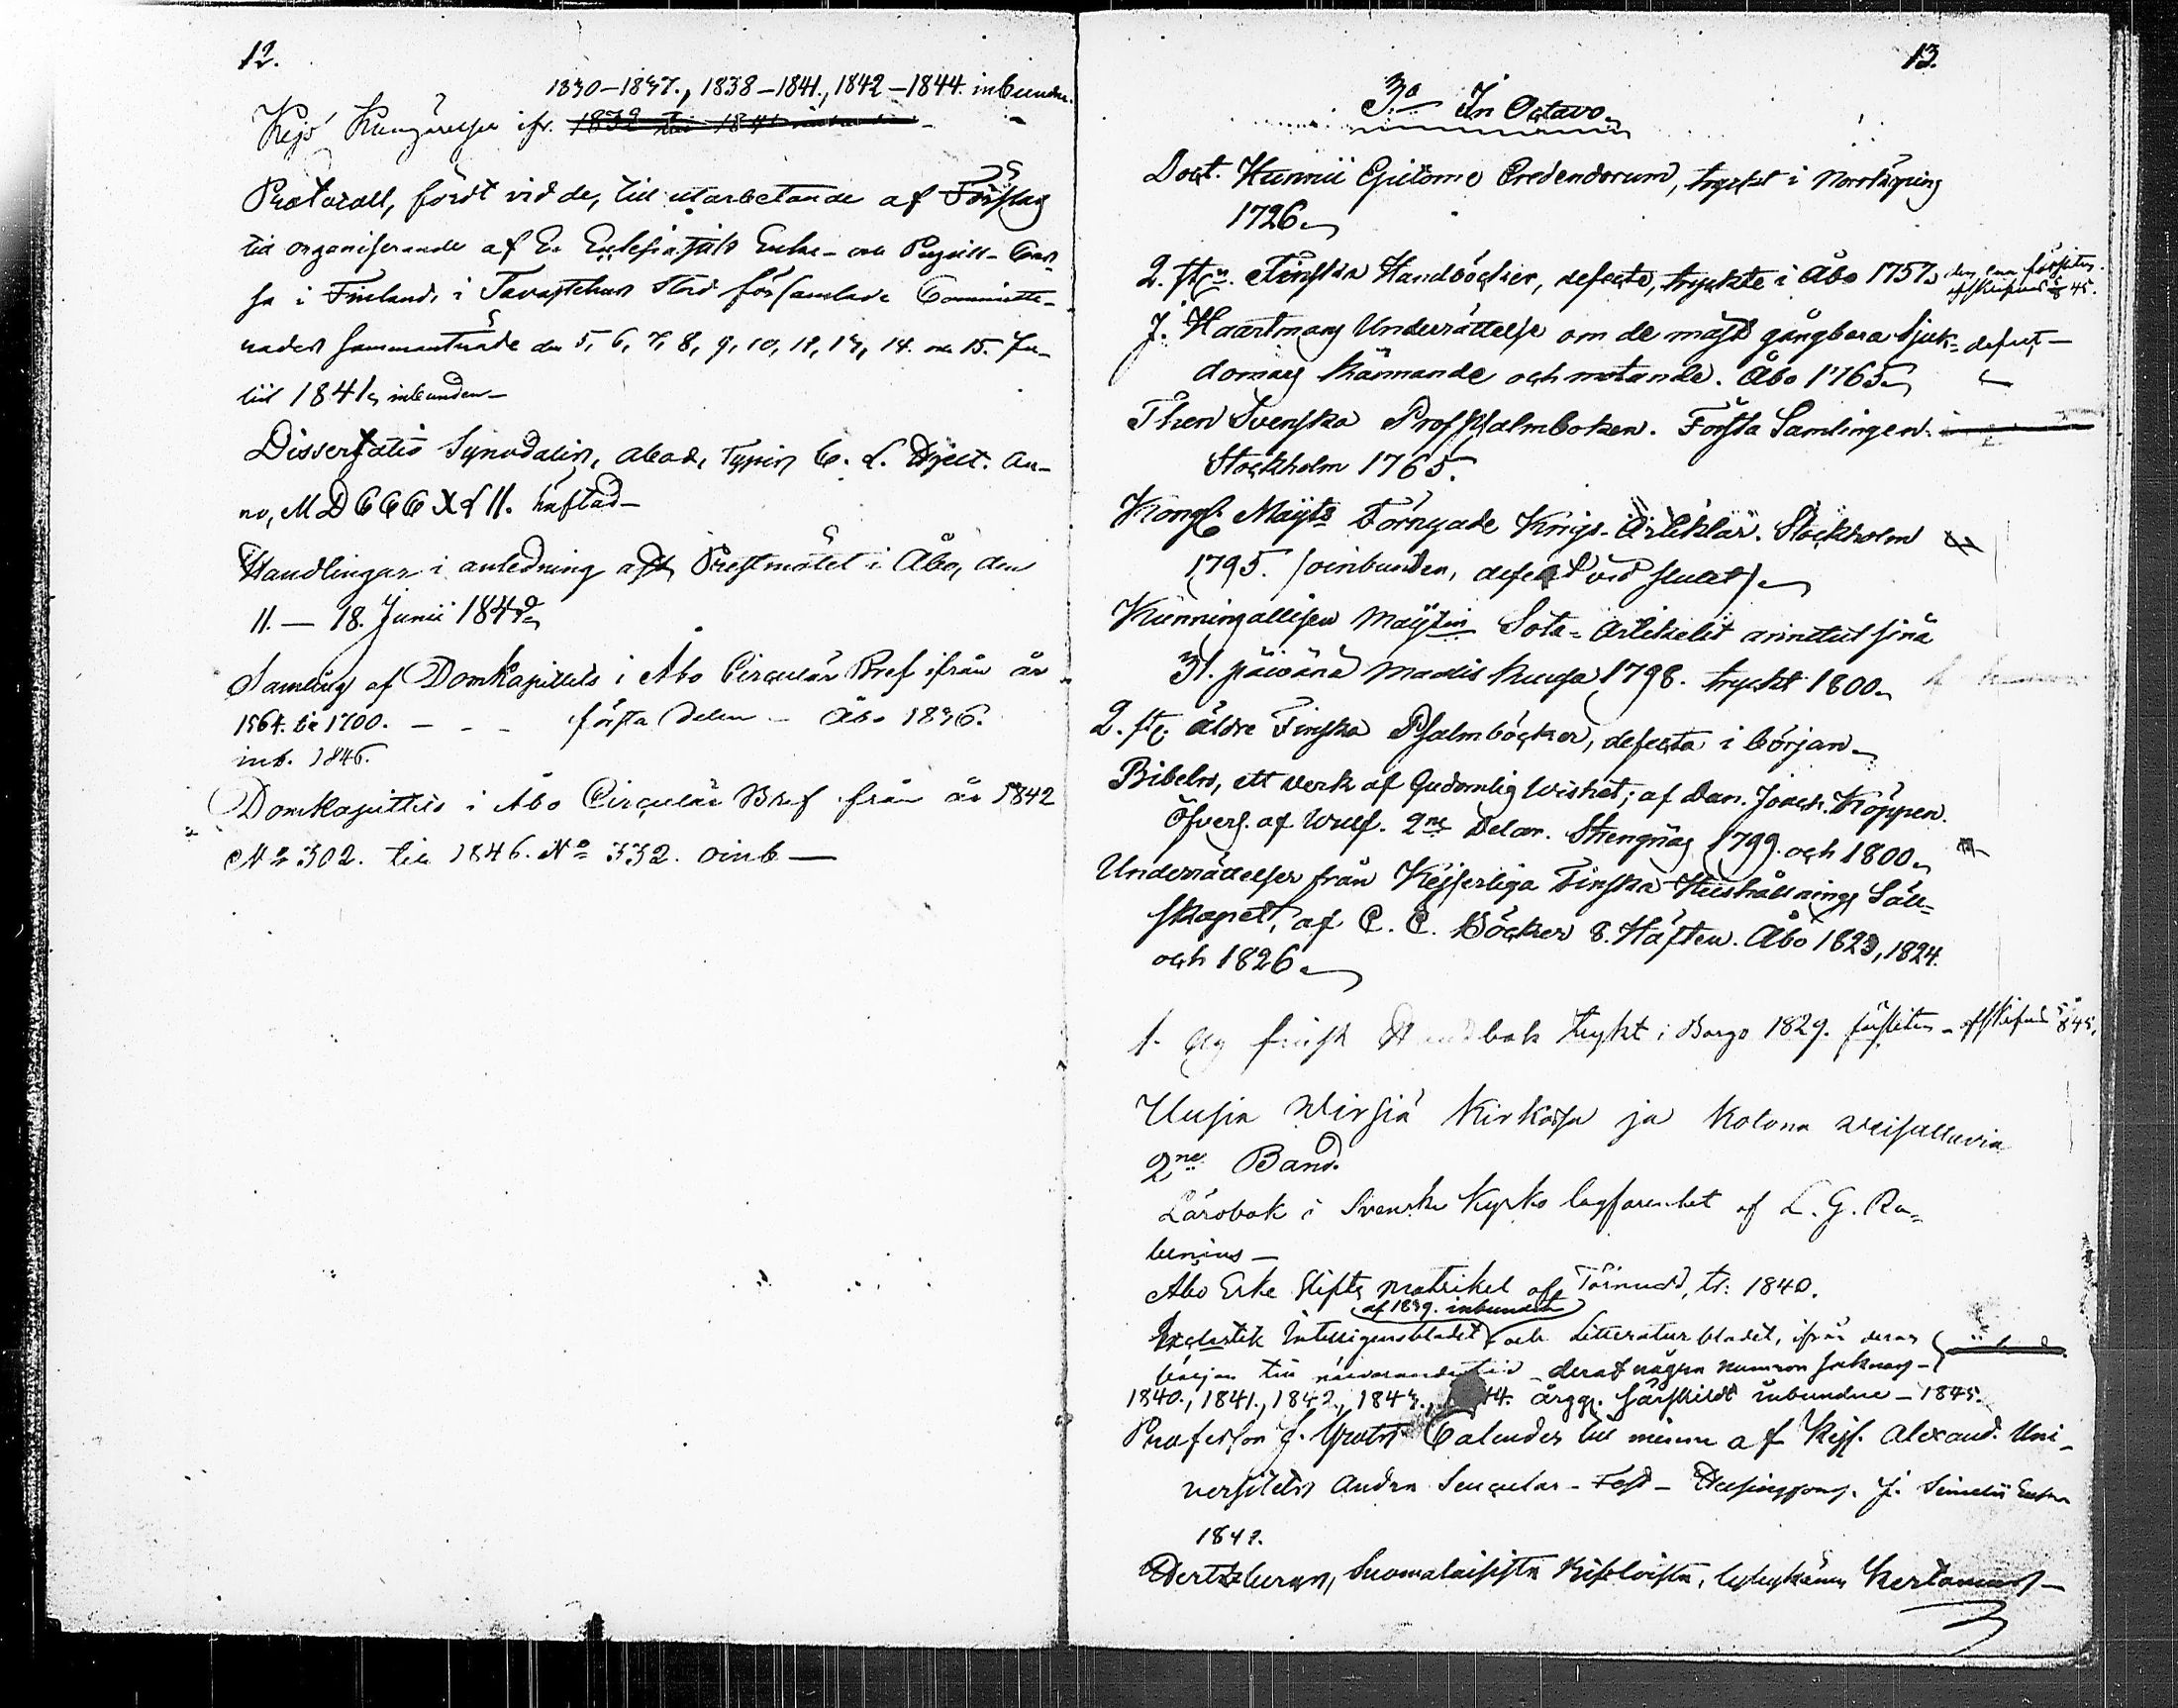 12.
1830-1837., 1838-1841., 1842-1844. inbundne.
Kejs. Kungörelser ifr. 1832 till 1841
Protocoll, fördt vid de, till utarbetande af Förslag
till organiserande af En Eclesiastik Enke- och Pupill-Cas-
sa i Finland, i Tavastehus Stad församlade Committe-
rades sammanträde den 5, 6, 7, 8, 9, 10, 12, 13, 14. och 15. Ju-
lii 1841, inbunden-
Dissertatio Synodalis, Aboæ, Typis C. L. Hjelt. An-
no, MDCCCXLII. häftad-
Handlingar i anledning af Prestmötet i Åbo, den
11.-18. Junii 1842
Samling af Domkapitlets i Åbo Circulär Bref ifrån år
1564. till 1700. - - - första Delen - Åbo 1836.
inb. 1846.
Domkapitlets i Åbo Circulär Bref från år 1842
No 302. till 1846. No 332. oinb-
13.
3o In Octavo.
Doct. Hunnii Epitome Credendorum, tryckt i Norrköping
1726.
2. st. Finska Handböcker, defecte, tryckte i Åbo 1757. den ena försliten.
afskrifven 45.
J. Haartmans Underrättelse om de mäst gångbara Sjuk= defect-
domars kännande och motande. Åbo 1765.
Then Svenska Prof Psalmboken. Första Samlingen.
Stockholm 1765.
Kongl. Mayts Förnyade Krigs-Artiklar. Stockholm
1795. (oinbunden, defect vid slutet).
Kunningallisen Maytin Sota-Artikelit annetut sinä
31. päiwänä Maalis kuusa 1798. tryckt 1800.
2. st. äldre Finska Psalmböcker, defecta i början.
Bibeln, ett verk af Gudomlig Wishet; af Dan. Joach. Köppen.
Öfvers. af Wulf. 2ne Delar. Strengnäs 1799. och 1800.
Underrättelser från Kejserliga Finska Hushållnings Säll=
skapet, af C. C. Böcker 8. Häften. Åbo 1823, 1824.
och 1826.
1. Ny finsk Handbok tryckt i Borgo 1829. försliten - afskrifven 1845.
Uusia Wirsiä Kirkossa ja Kotona weisattavia
2ne Band.
Lärobok i Svenska Kyrko lagfarenhet af L. G. Ra-
benius-
Åbo Erke Stifts matrikel af Törnudd, tr. 1840.
af 1839. inbundet
Eclestik Intelligensbladet och Litteratur bladet, ifrån deras
början till närvarande tid - deraf några numror saknas-
1840., 1841., 1842., 1843., 1844. årgg. särskildt inbundne - 1845.
Professor J. Grots Calender till minne af Kejs. Alexand. Uni-
versitetets Andra Secular-Fest - Helsingfors. J. Simelii Enka
1842.
Hertzbergen, Suomalaisista Kertomus-